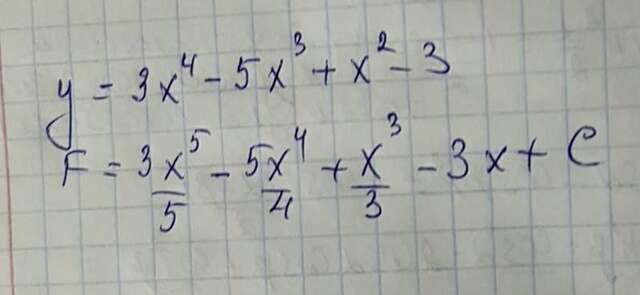 y = 3x⁴ - 5x³ + x² - 3
F = 3x⁵/5 - 5x⁴/4 + x³/3 - 3x + C